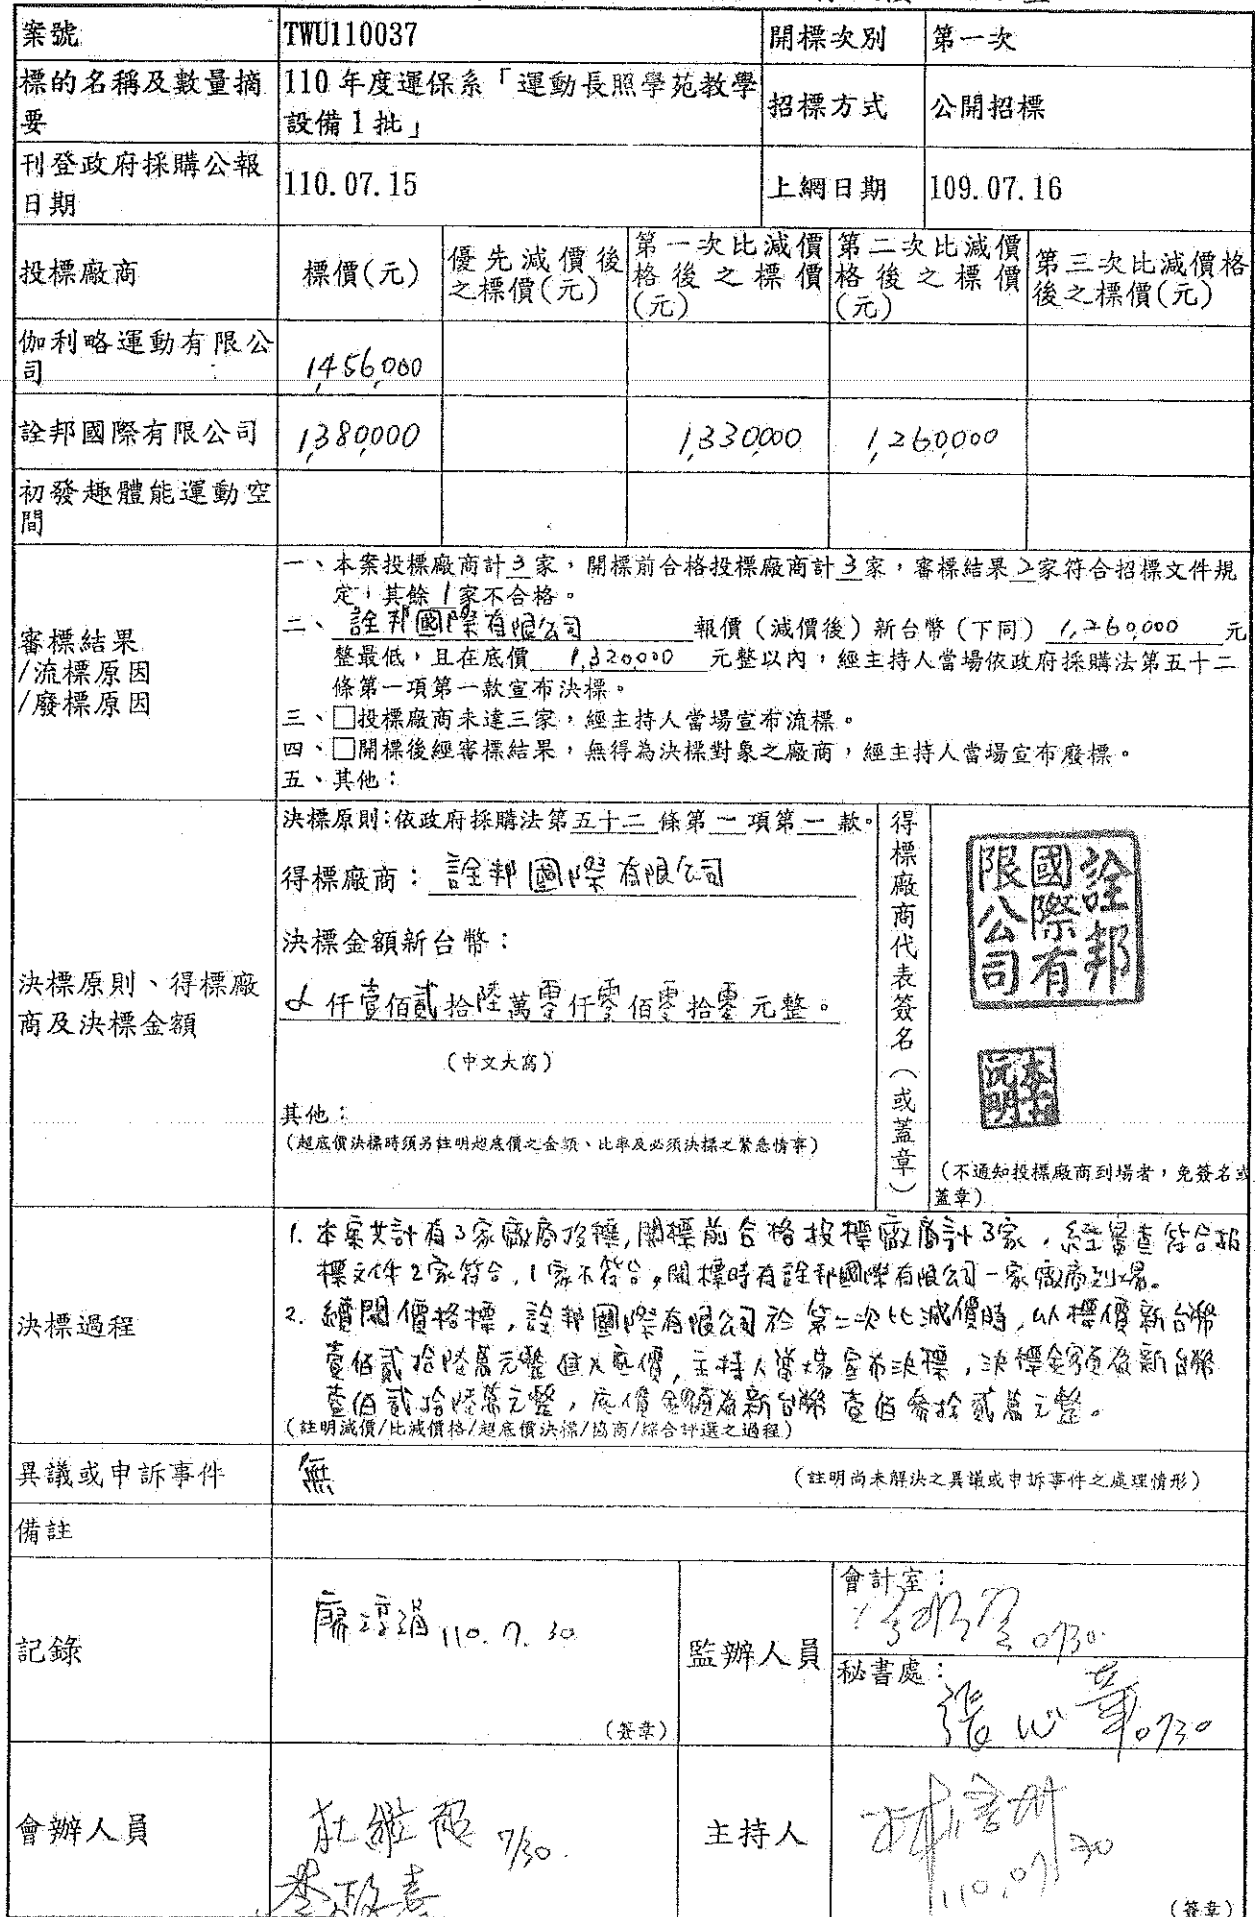 案號 TWU110037 開標次別 第一次
標的名稱及數量摘要 110年度運保系「運動長照學苑教學設備1批」 招標方式 公開招標
刊登政府採購公報日期 110.07.15 上網日期 109.07.16
投標廠商 標價(元) 優先減價後之標價(元) 第一次比減價格後之標價(元) 第二次比減價格後之標價(元) 第三次比減價格後之標價(元)
伽利略運動有限公司 1,456,000
詮邦國際有限公司 1,380,000 1,330,000 1,260,000
初發趣體能運動空間
審標結果
/流標原因
/廢標原因
一、本案投標廠商計3家,開標前合格投標廠商計3家,審標結果2家符合招標文件規
定,其餘1家不合格。
二、詮邦國際有限公司 報價(減價後)新台幣(下同)1,260,000元
整最低,且在底價 1,320,000 元整以內,經主持人當場依政府採購法第五十二
條第一項第一款宣布決標。
三、□投標廠商未達三家,經主持人當場宣布流標。
四、□開標後經審標結果,無得為決標對象之廠商,經主持人當場宣布廢標。
五、其他:
決標原則、得標廠商及決標金額
決標原則:依政府採購法第五十二條第一項第一款。
得標廠商:詮邦國際有限公司
決標金額新台幣:
仟壹佰貳拾陸萬零仟零佰零拾零元整。
(中文大寫)
其他:
(超底價決標時須另註明超底價之金額、比率及必須決標之緊急情事)
得標廠商代表簽名(或蓋章)
詮邦國際有限公司
(不通知投標廠商到場者,免簽名或
蓋章)
決標過程
1. 本案共計有3家廠商投標,開標前合格投標廠商計3家,經審查符合招
標文件2家符合,1家不符合,開標時有詮邦國際有限公司一家廠商到場。
2. 續開價格標,詮邦國際有限公司於第二次比減價時,以標價新台幣
壹佰貳拾陸萬元整進入底價,主持人當場宣布決標,決標金額為新台幣
壹佰貳拾陸萬元整,底價金額為新台幣壹佰參拾貳萬元整。
(註明減價/比減價格/超底價決標/協商/綜合評選之過程)
異議或申訴事件 無 (註明尚未解決之異議或申訴事件之處理情形)
備註
記錄 110.7.30 (簽章)
監辦人員
會計室: 0730
秘書處: 0730
會辦人員 7/30
主持人 110.07.30 (簽章)